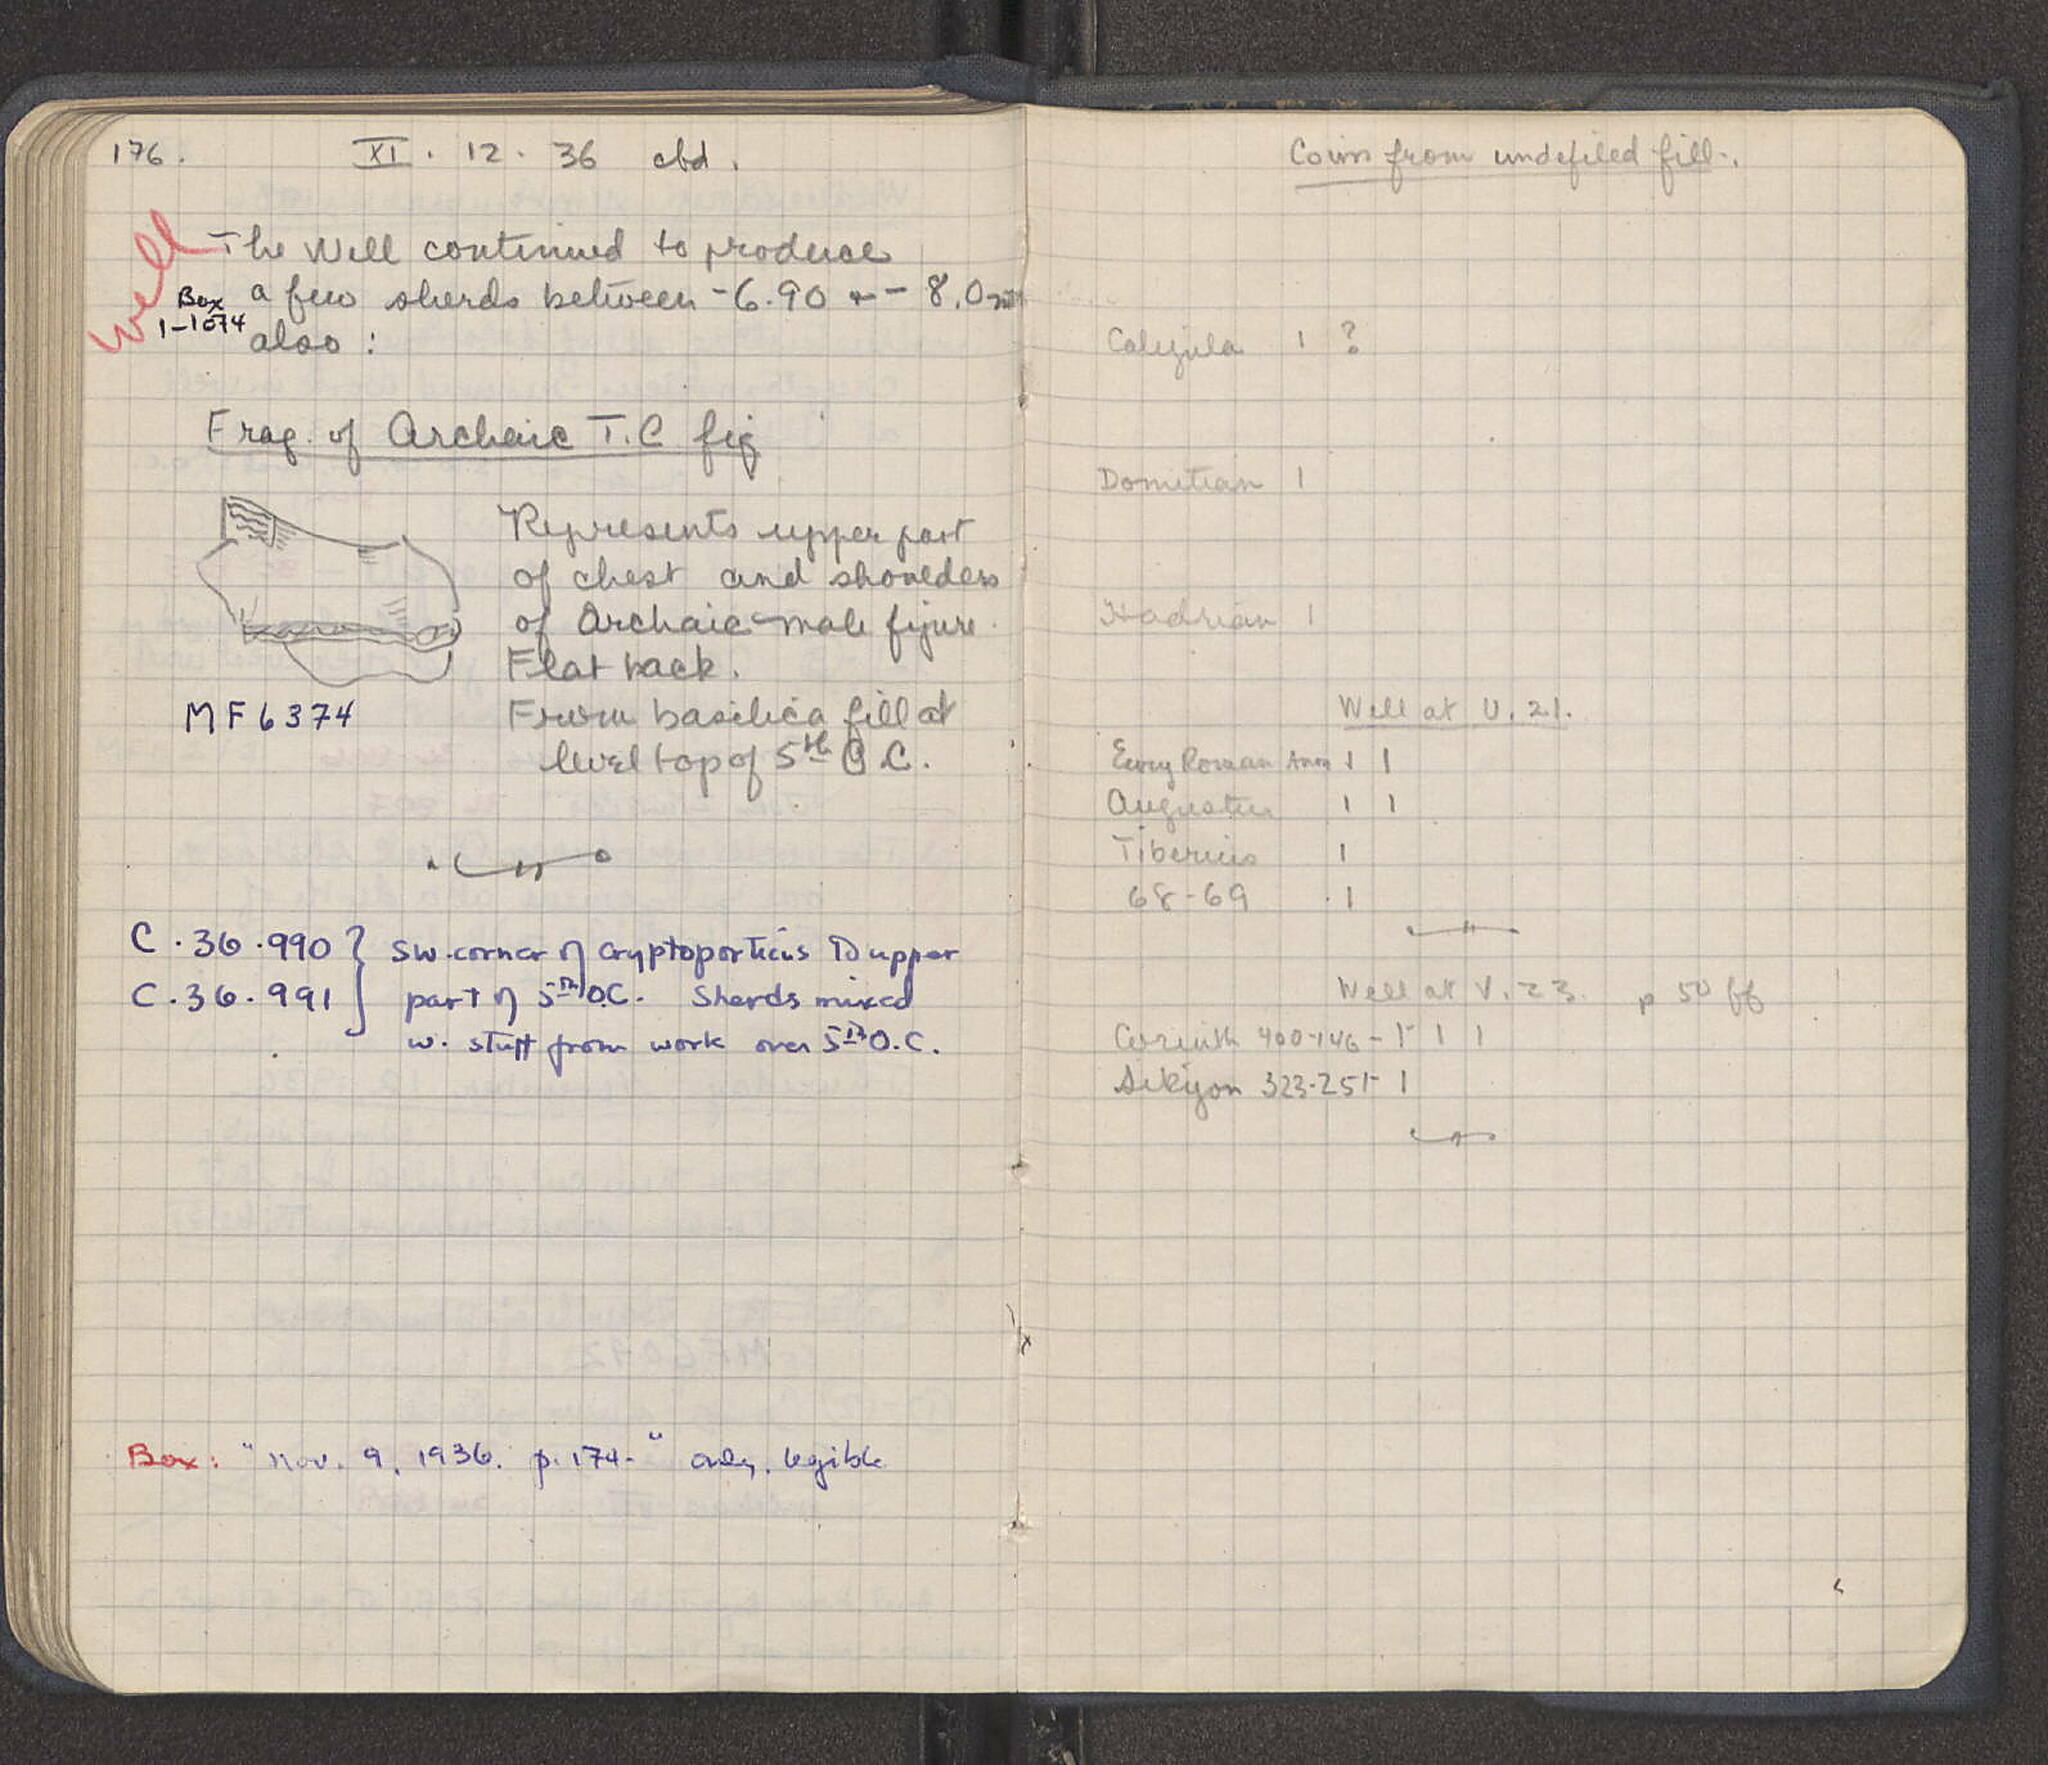 176.
XI. 12. 36 cbd.
Well
The Well continued to produce
Box
1-1074
a few sherds between -6.90 + -8.0 m
also:
Frag. of Archaic T.C fig
Represents upper part
of chest and shoulders
of Archaic male figure.
Flat back.
MF 6374
From basilica fill at
level top of 5th O.C.
C.36.990 } SW. corner of Cryptoporticus to upper
C.36.991 } part of 5th O.C. Sherds mixed
w. stuff from work over 5th O.C.
Box: "Nov. 9, 1936. p. 174-" only, legible
Coins from undefiled fill.
Caligula 1 ?
Domitian 1
Hadrian 1
Well at U.21.
Early Roman 1 1
Augustus 1 1
Tiberius 1
68-69 1
Well at V.23. p 50 ff
Corinth 400-146 - 1 1 1
Sikyon 323-251 - 1